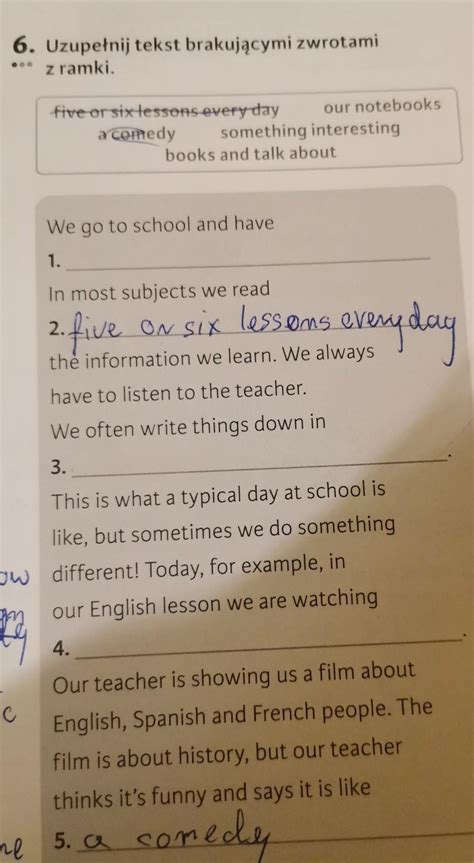 6. Uzupełnij tekst brakującymi zwrotami
z ramki.
five or six lessons every day our notebooks
a comedy something interesting
books and talk about
We go to school and have
1.
In most subjects we read
2. five or six lessons every day
the information we learn. We always
have to listen to the teacher.
We often write things down in
3. .
This is what a typical day at school is
like, but sometimes we do something
different! Today, for example, in
our English lesson we are watching
4. .
Our teacher is showing us a film about
English, Spanish and French people. The
film is about history, but our teacher
thinks it's funny and says it is like
5. a comedy